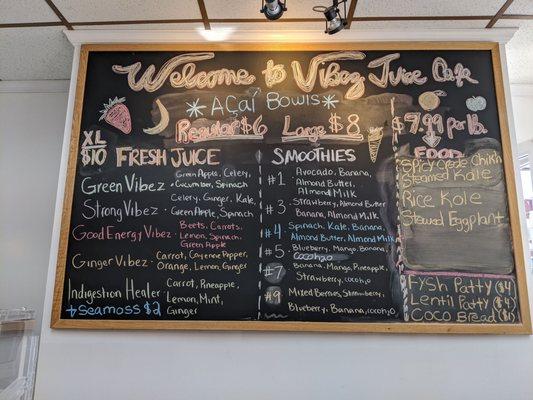 Welcome to Vibez Juice Cafe
* Açaí Bowls *
Regular $6 Large $8
$7.99 per lb.
FOOD
XL
$10 FRESH JUICE
Green Vibez - Green Apple, Celery,
Cucumber, Spinach
Strong Vibez - Celery, Ginger, Kale,
Green Apple, Spinach
Good Energy Vibez - Beets, Carrots,
Lemon, Spinach,
Green Apple
Ginger Vibez - Carrot, Cayenne Pepper,
Orange, Lemon, Ginger
Indigestion Healer - Carrot, Pineapple,
Lemon, Mint,
Ginger
+ Seamoss $2
SMOOTHIES
#1 Avocado, Banana,
Almond Butter,
Almond Milk
#3 Strawberry, Almond Butter
Banana, Almond Milk
#4 Spinach, Kale, Banana,
Almond Butter, Almond Milk
#5 Blueberry, Mango, Banana,
Cocoh2o
#7 Banana, Mango, Pineapple,
Strawberry, cocoh2o
#9 Mixed Berries, Strawberry,
Blueberry, Banana, cocoh2o
Spicy Chikn
Steamed Kale
Rice Kole
Stewed Eggplant
Fysh Patty ($4)
Lentil Patty ($4)
Coco Bread ($1)